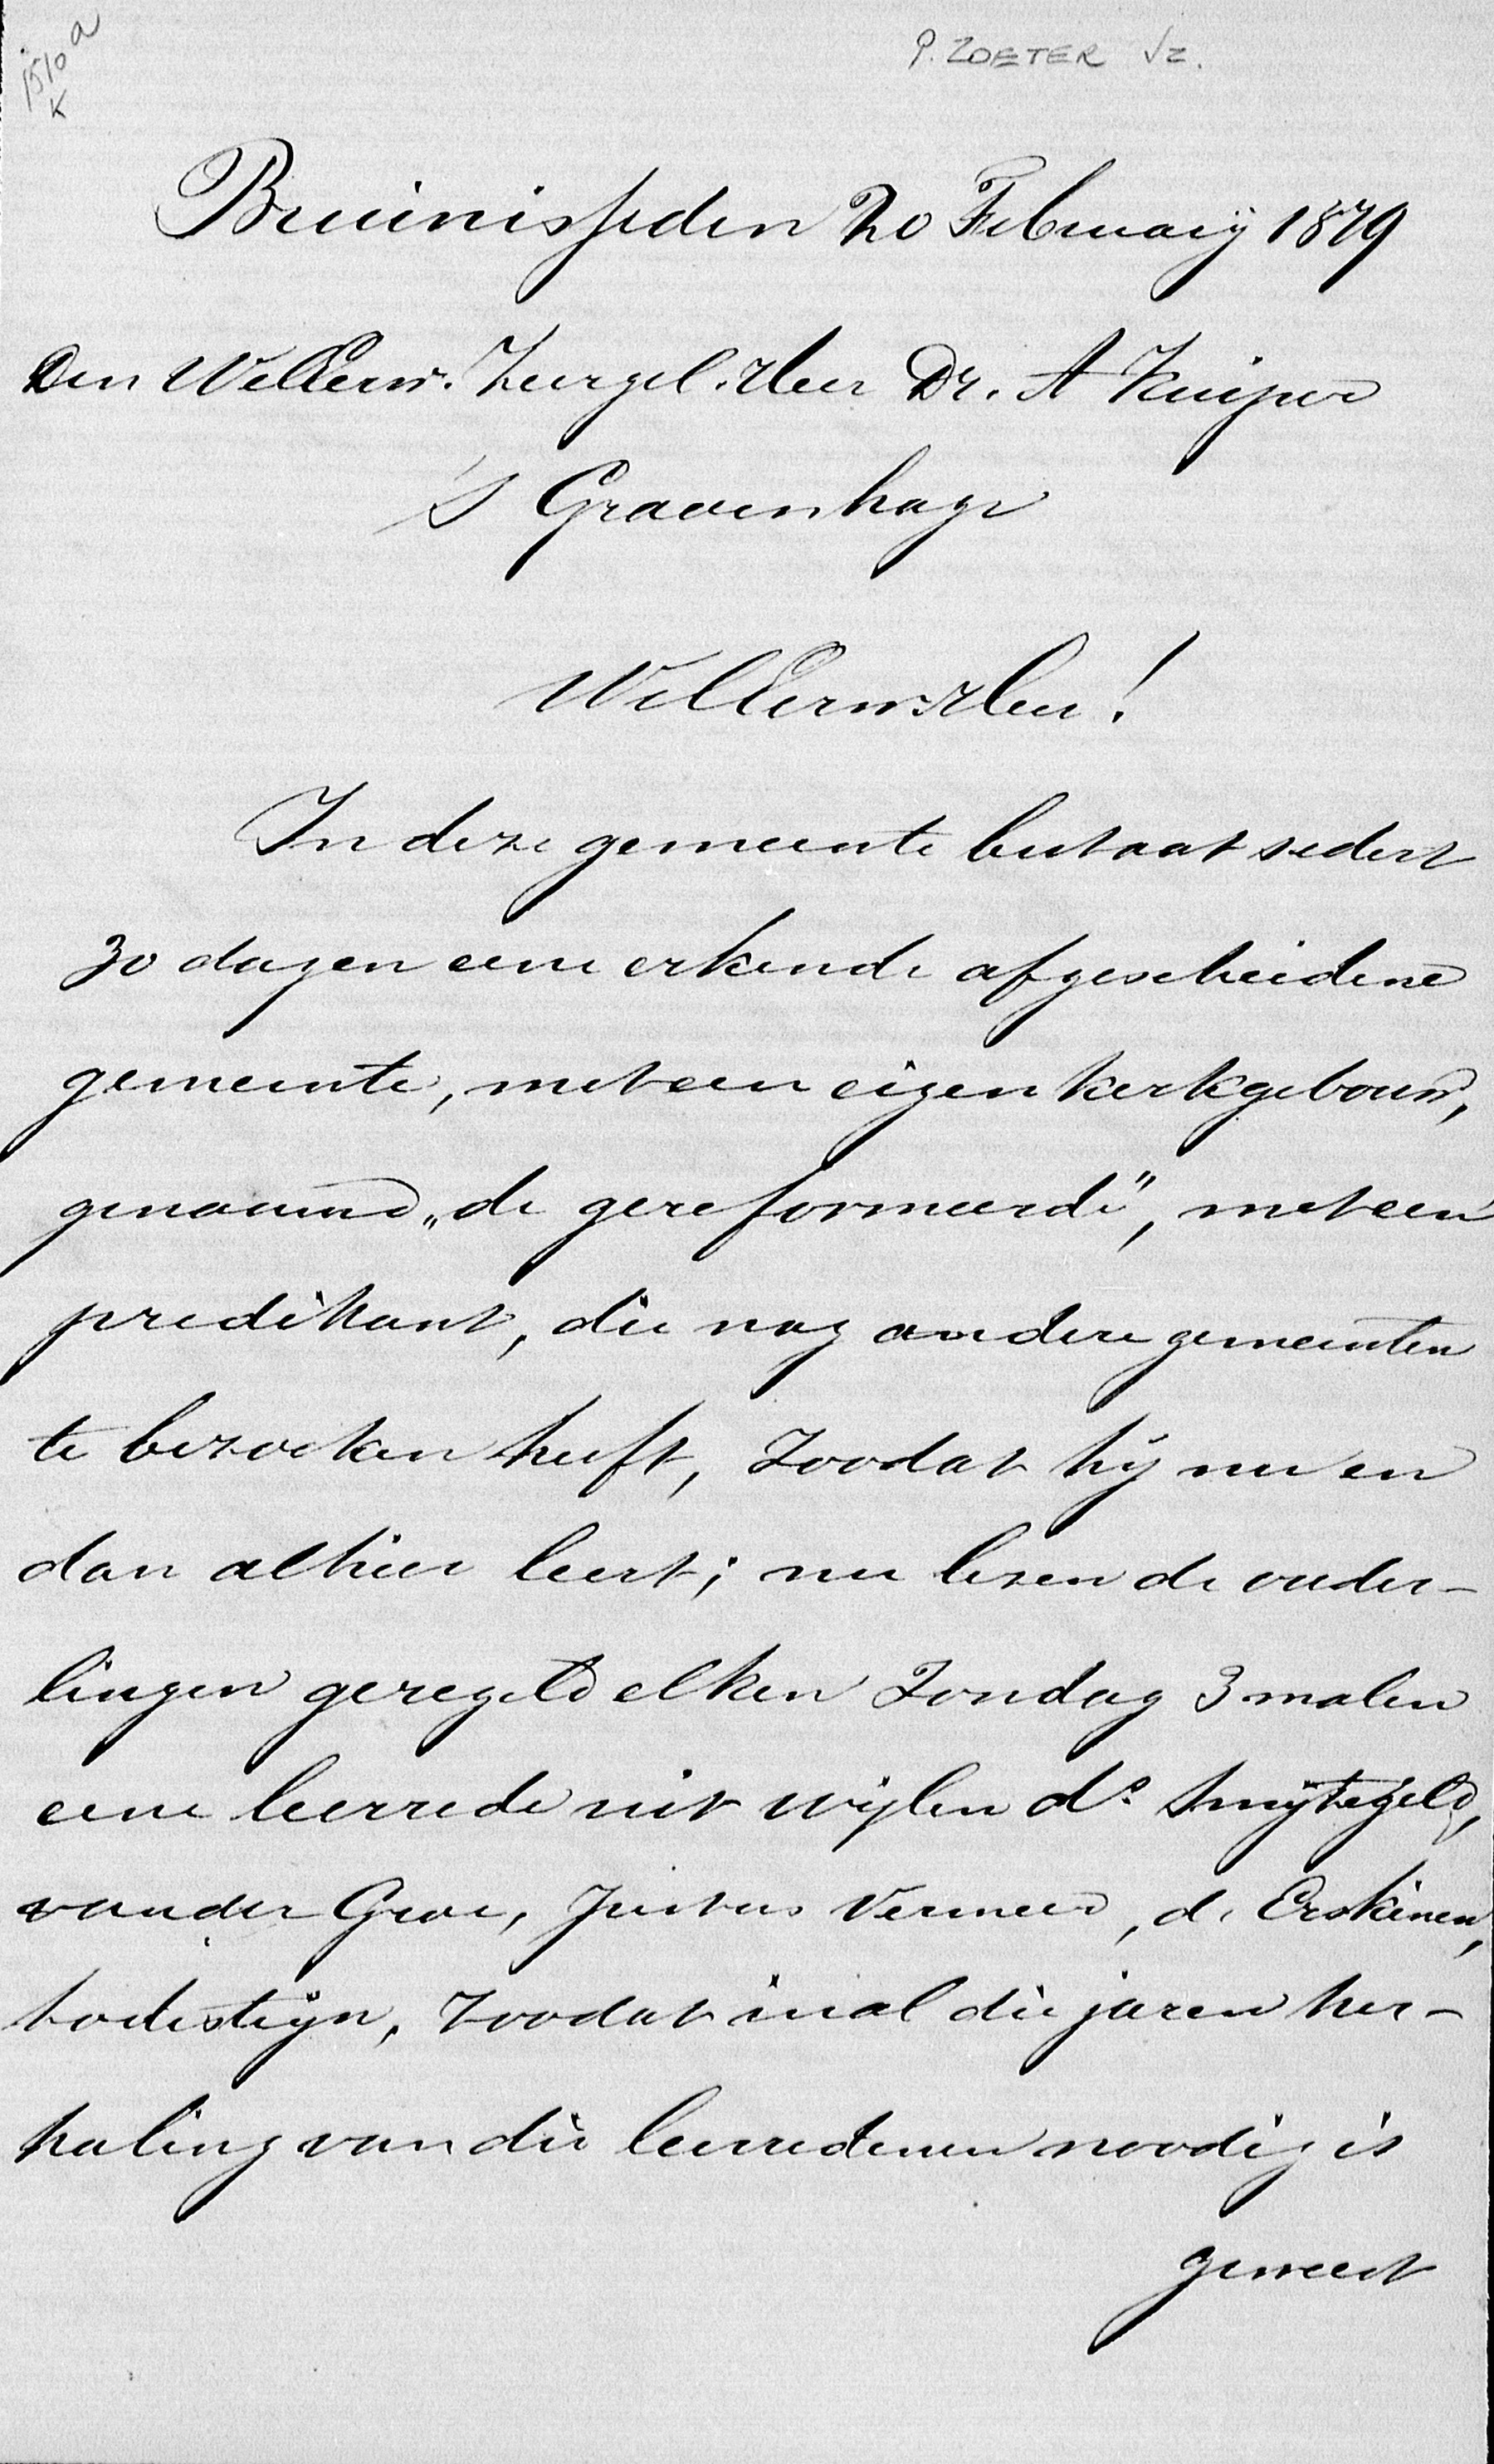 1510a
K
P. ZOETER Jz.
Bruinisse den 20 February 1879
Den WelEerw. Zeergel. Heer Dr. A Kuiper
's Gravenhage
WelEerw. Heer!
In deze gemeente bestaat sedert
30 dagen eene erkende afgescheidene
gemeente, met een eigen kerkgebouw,
genaamd „de gereformeerde", met een
predikant, die nog andere gemeenten
te bezoeken heeft, zoodat hij nu en
dan alhier leert; nu lezen de ouder-
lingen geregeld elken Zondag 3 malen
eene leerrede uit wijlen ds. Smijtegeld,
vander Groe, Justus Vermeer, de Erskinen,
Lodestijn, zoodat in al die jaren her-
haling van die leerredenen noodig is
geweest